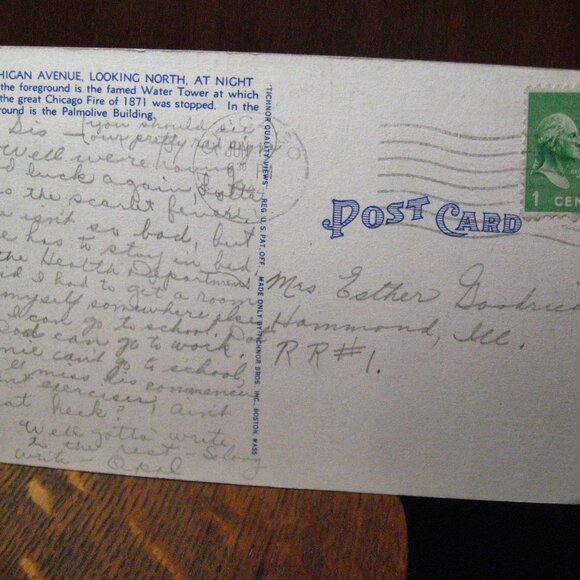 HIGAN AVENUE, LOOKING NORTH, AT NIGHT
the foreground is the famed Water Tower at which
the great Chicago Fire of 1871 was stopped. In the
round is the Palmolive Building.
Sis - (you should see
our pretty red
Well we're having
d luck again,
s the scarlet fever.
a isn't so bad, but
e has to stay in bed,
the Health Department
d I had to get a room
myself somewhere else
I can go to school,
Dad can go to work.
nie can't go to school,
ll miss his commence
nt exercises! Ain't
at heck?
Well gotta write
to the rest - So long
write - Opal
TICHNOR QUALITY VIEWS. REG. U. S. PAT. OFF. MADE ONLY BY TICHNOR BROS. INC., BOSTON, MASS
JUN
POST CARD
1 CEN
Mrs Esther Goodric
Hammond, Ill.
RR#1.